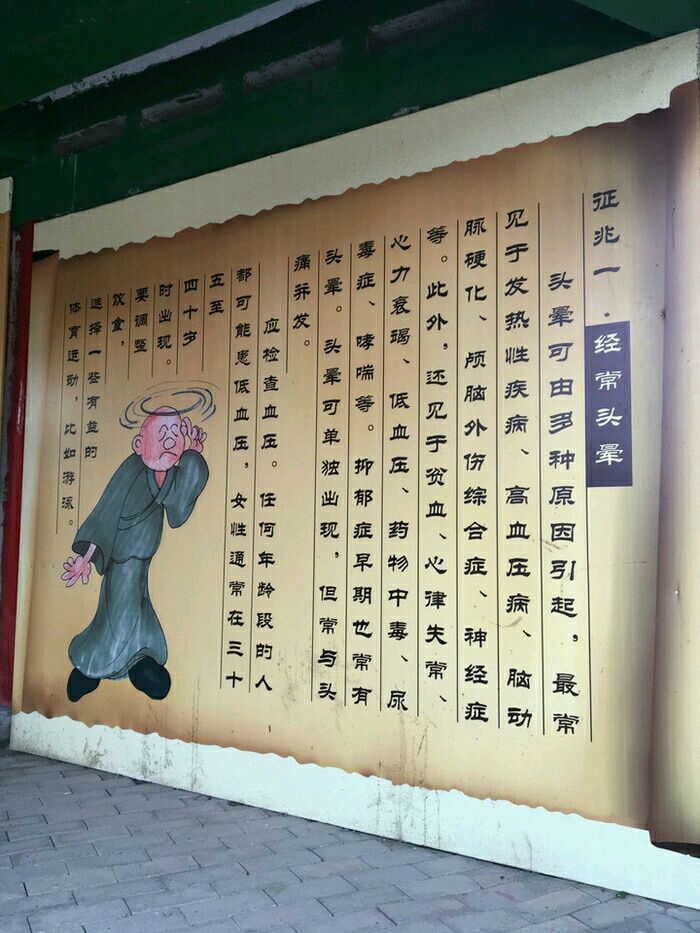 征兆一·经常头晕
头晕可由多种原因引起，最常
见于发热性疾病、高血压病、脑动
脉硬化、颅脑外伤综合症、神经症
等。此外，还见于贫血、心律失常、
心力衰竭、低血压、药物中毒、尿
毒症、哮喘等。抑郁症早期也常有
头晕。头晕可单独出现，但常与头
痛并发。
应检查血压。任何年龄段的人
都可能患低血压，女性通常在三十
五至
四十岁
时出现。
要调整
饮食，
选择一些有益的
体育运动，比如游泳。